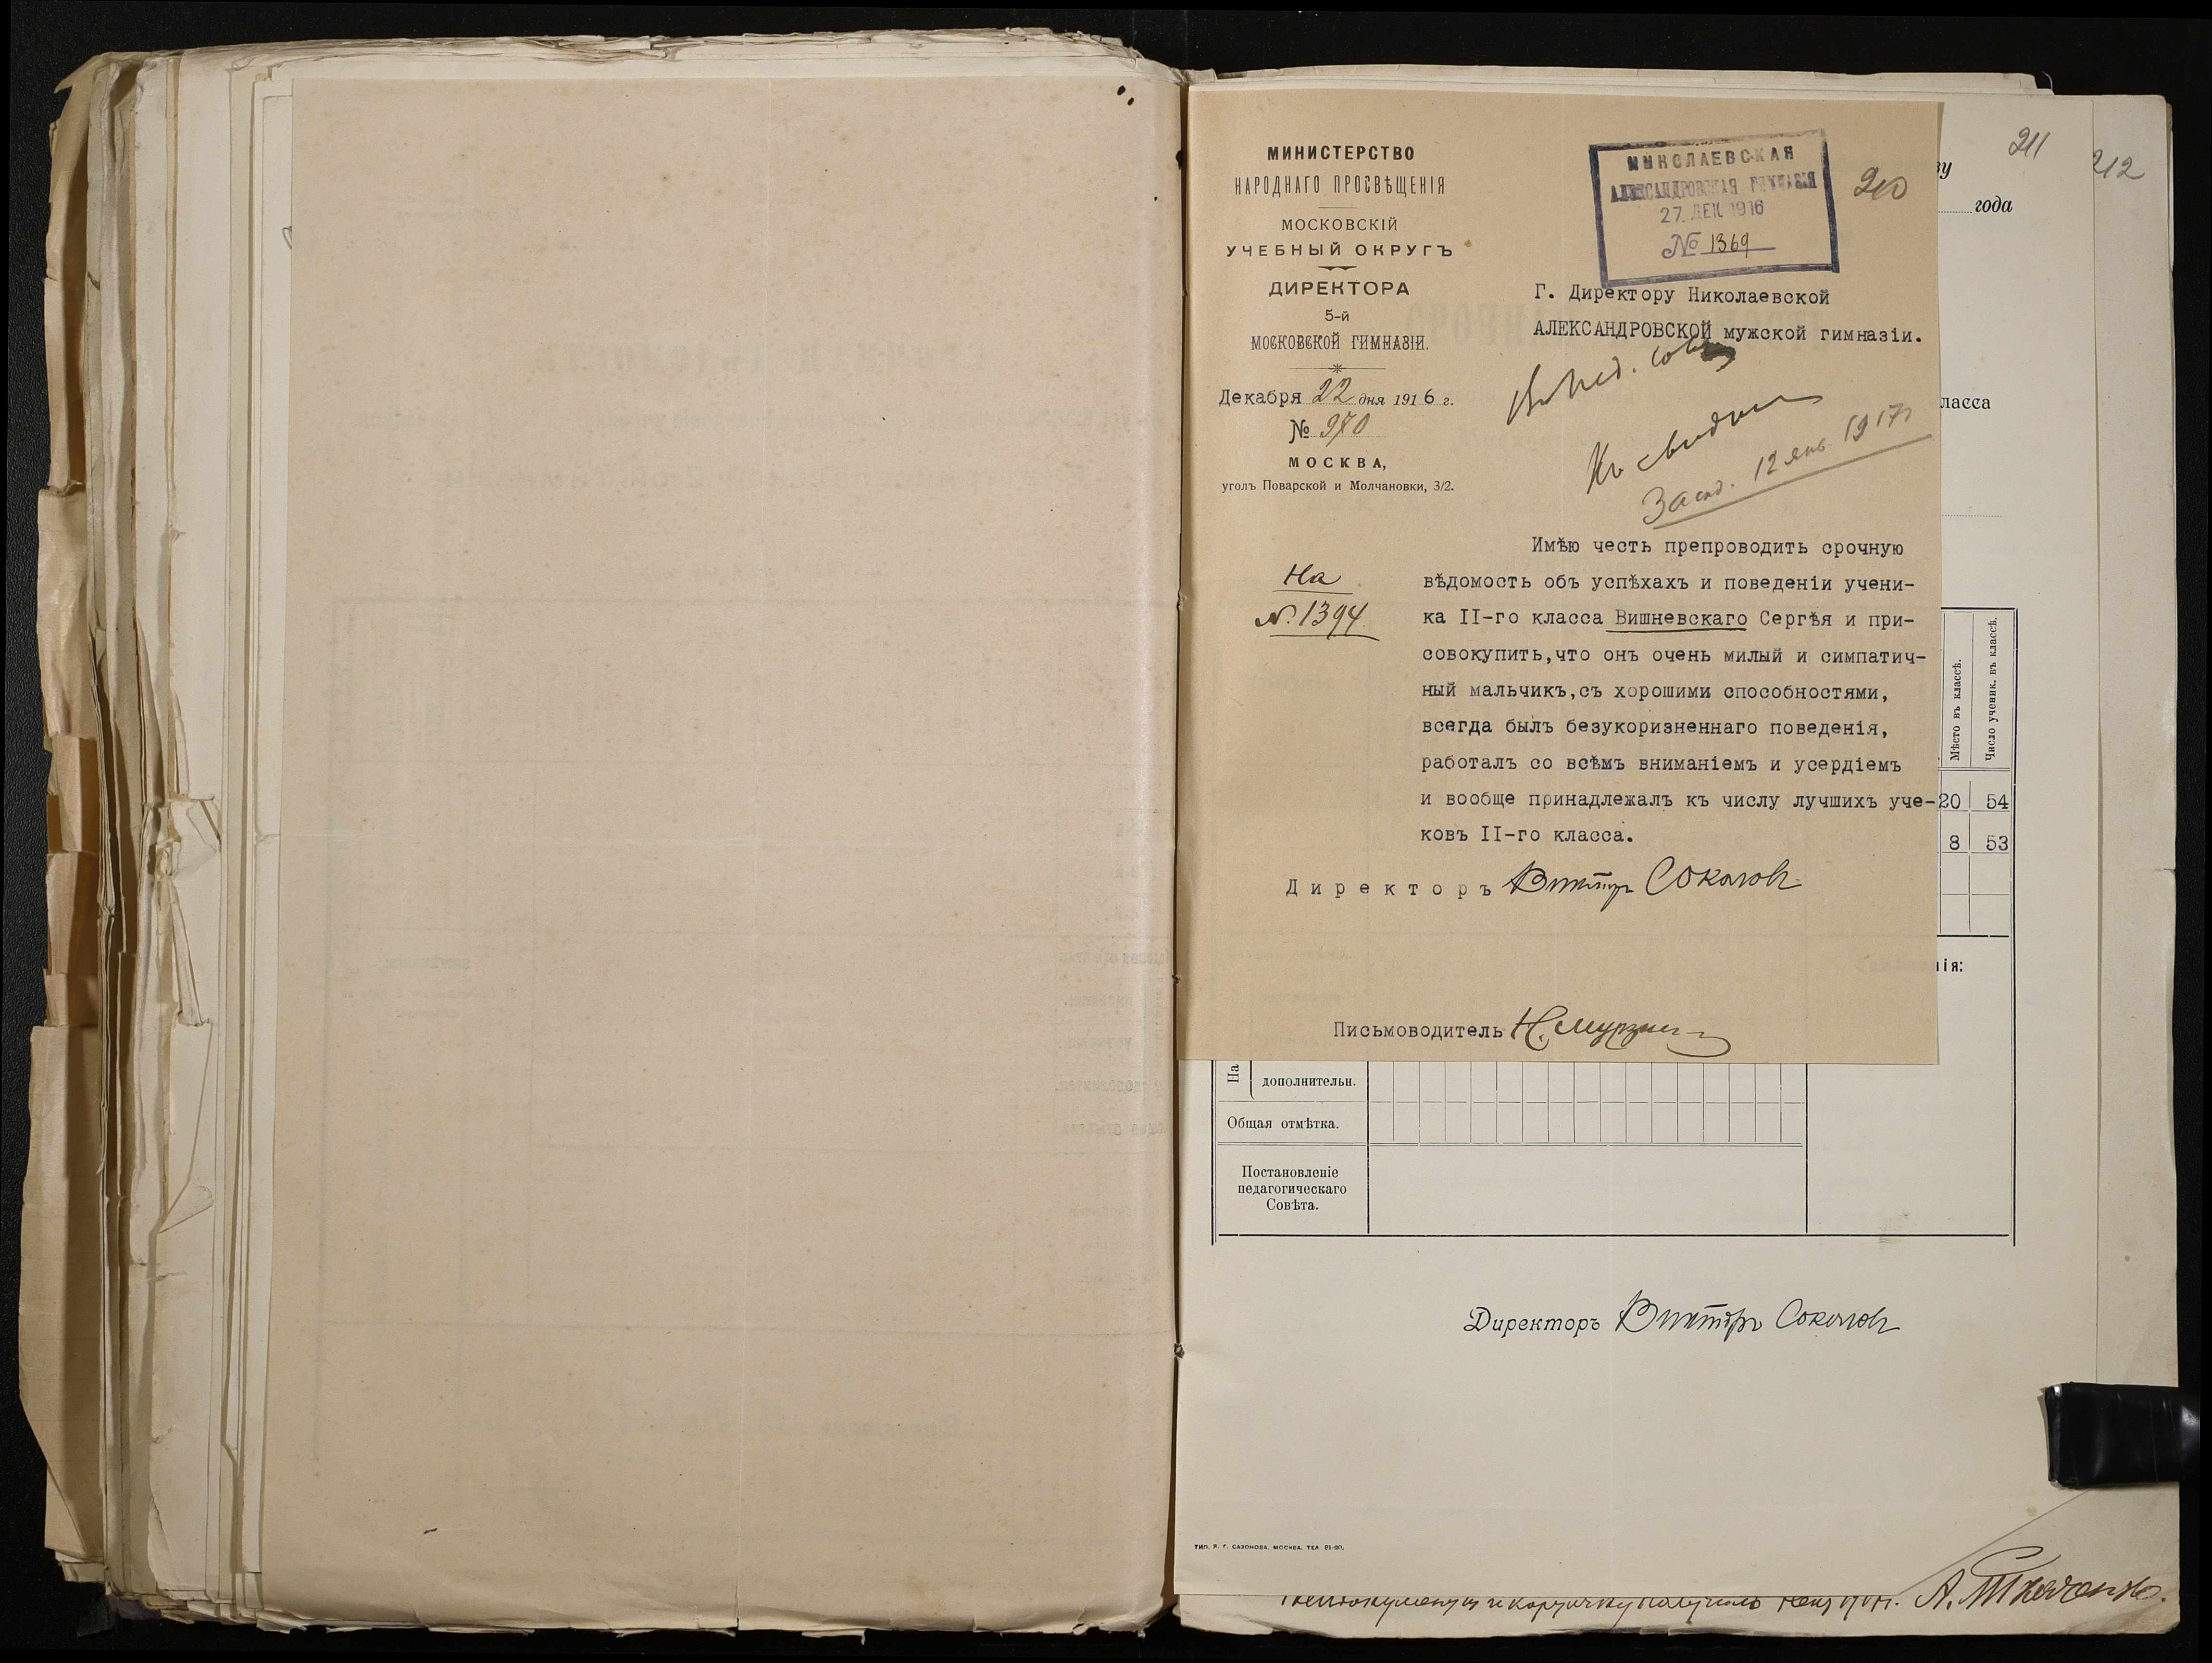 МИНИСТЕРСТВО
НАРОДНАГО ПРОСВѢЩЕНІЯ
МОСКОВСКІЙ
УЧЕБНЫЙ ОКРУГЪ
ДИРЕКТОРА
5-й
МОСКОВСКОЙ ГИМНАЗІИ.
Декабря 22 дня 1916 г.
№ 970
МОСКВА,
уголъ Поварской и Молчановки, 3/2.
На
№. 1394
НИКОЛАЕВСКАЯ
АЛЕКСАНДРОВСКАЯ ГИМНАЗІЯ
27 ДЕК 1916
№ 1369
210
211
212
Г. Директору Николаевской
АЛЕКСАНДРОВСКОЙ мужской гимназіи.
Въ пед. сов.
Къ свѣдѣнію
Засѣд. 12 янв. 1917 г.
Имѣю честь препроводить срочную
вѣдомость объ успѣхахъ и поведеніи учени-
ка II-го класса Вишневскаго Сергѣя и при-
совокупить,что онъ очень милый и симпатич-
ный мальчикъ,съ хорошими способностями,
всегда былъ безукоризненнаго поведенія,
работалъ со всѣмъ вниманіемъ и усердіемъ
и вообще принадлежалъ къ числу лучшихъ уче-
ковъ II-го класса.
Директоръ Викторъ Соколовъ
Письмоводитель Н. Мурзин
ву
года
ласса
Мѣсто въ классѣ.
Число ученик. въ классѣ.
20 54
8 53
нія:
На
дополнительн.
Общая отмѣтка.
Постановленіе
педагогическаго
Совѣта.
Директоръ Викторъ Соколовъ
ТИП. Я. Г. САЗОНОВА, МОСКВА. ТЕЛ. 21-90.
А. Ткаченко.